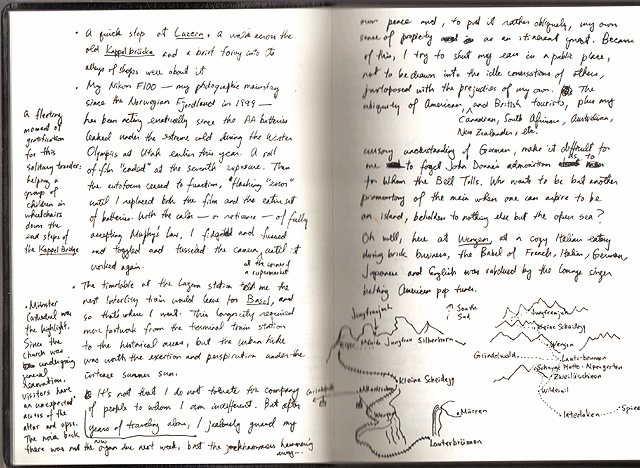 • A quick stop at Lucern, a walk across the
old Kappelbrücke and a brief foray into its
alleys of shops were about it
• My Nikon F100 — my photographic mainstay
since the Norwegian Fjordland in 1999 —
has been acting erratically since the AA batteries
leaked under the extreme cold during the Winter
Olympics at Utah earlier this year. A roll
of film "ended" at the seventh exposure. Then
the autofocus ceased to function, flashing "error"
until I replaced both the film and the entire set
of batteries. With the calm — or numbness — of fully
accepting Murphy's Law, I fidgeted and fussed
and toggled and tussled the camera until it
at the corner of
a supermarket
worked again.
• The timetable at the Luzern station told me the
next InterCity train would leave for Basel, and
so that's where I went. This longevity required
more footwork from the terminal train station
to the historical areas, but the urban hike
was worth the exertion and perspiration under the
summer sun.
It's not that I do not tolerate the company
of people to whom I am indifferent. But after
years of traveling alone, I jealously guard my
A fleeting
moment of
gratification
for this
solitary traveler:
helping a
group of
children in
wheelchairs
down the
end steps of
the Kappel Bridge
• Münster
Cathedral was
the highlight.
Since the
church was
undergoing
general
renovation,
visitors have
an unexpected
access of the
altar and apse.
The nave back
there was not the
new
organ due next week, but the
hammering
away...
own peace and, to put it rather obliquely, my own
sense of property as an itinerant guest. Because
of this, I try to shut my ears in a public place,
not to be drawn into the idle conversations of others,
juxtaposed with the prejudices of my own. The
ubiquity of American and British tourists, plus my
Canadian, South African, Australian,
New Zealander, etc.
cursory understanding of German, make it difficult for
me to forget John Donne's admonition as to
for Whom the Bell Tolls. Who wants to be but another
promontory of the main when one can aspire to be
an island, beholden to nothing else but the open sea?
Oh well, here at Wengen, at a cozy Italian eatery
doing brisk business, the Babel of French, Italian, German,
Japanese and English was subdued by the lounge singer
belting American pop tunes.
Jungfraujoch
South
Jungfrau Silberhorn
Kleine Scheidegg
Wengen
Mürren
Lauterbrunnen
Jungfraujoch
Kleine Scheidegg
Wengen
Grindelwald
Lauterbrunnen
Schynige Platte - Alpengarten
Zweilütschinen
Wilderswil
Interlaken
Spiez